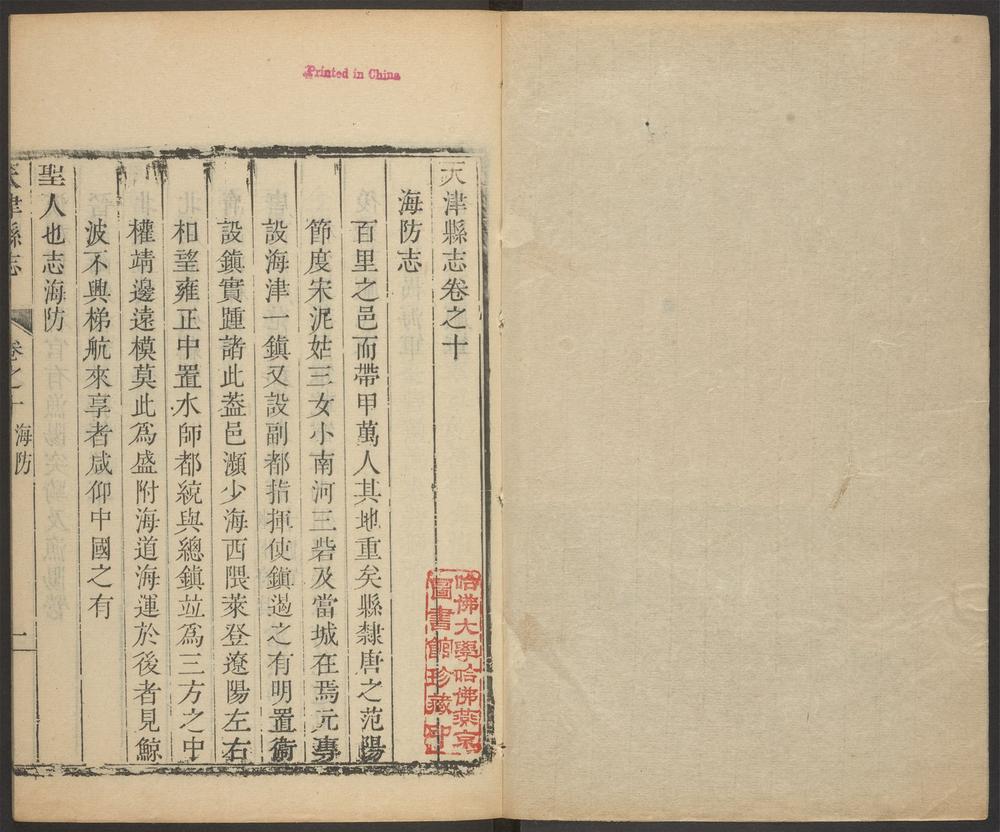 Printed in China
天津縣志卷之十
海防志
百里之邑而帶甲萬人其地重矣縣隸唐之范陽
節度宋泥姑三女小南河三砦及當城在焉元專
設海津一鎮又設副都指揮使鎮遏之有明置衞
設鎮實踵諸此葢邑瀕少海西隈萊登遼陽左右
相望雍正中置水師都統與總鎮竝爲三方之中
權靖邊遠模莫此爲盛附海道海運於後者見鯨
波不興梯航來享者咸仰中國之有
聖人也志海防
天津縣志
卷之十
海防
一
哈佛大學哈佛燕京
圖書館珍藏印